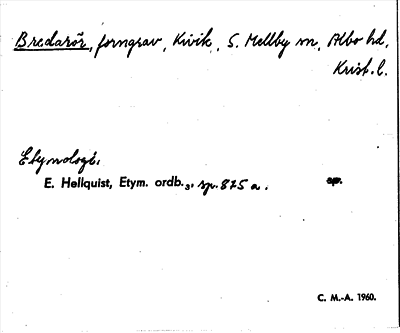 Bredarör, forngrav, Kivik, S. Mellby sn, Albo hd,
Krist. l.
Etymologi:
E. Hellquist, Etym. ordb.₃, sp. 825 a.
C. M.-A. 1960.